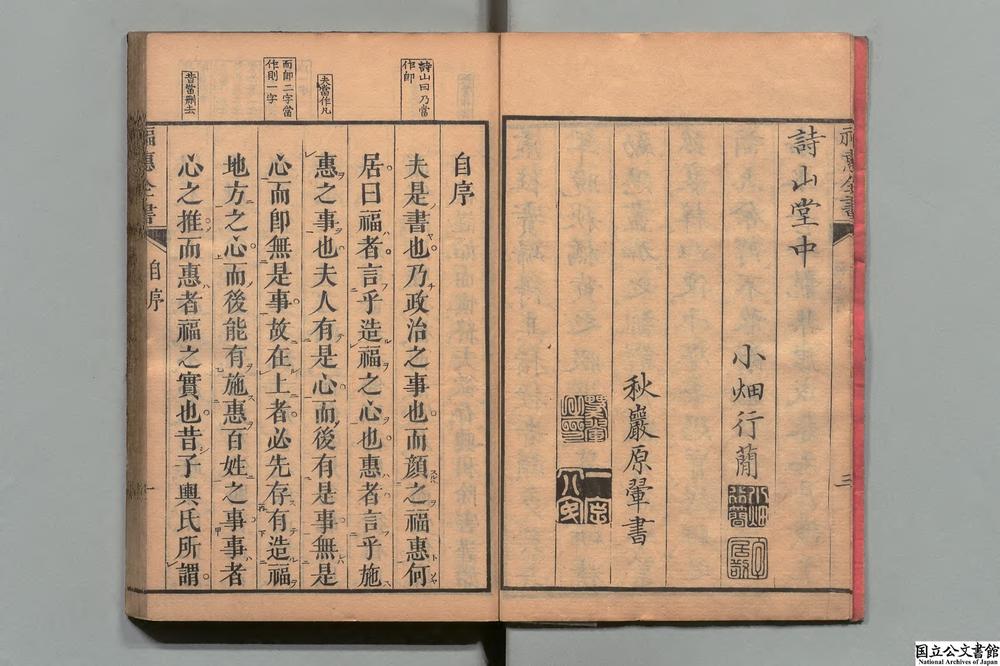 福惠全書
三
詩山堂中
小畑行蕳
秋巖原翬書
詩山曰乃當
作即
夫當作凡
而即二字當
作則一字
昔當刪去
自序
夫是書也乃政治之事也而顏之福惠何
居曰福者言乎造福之心也惠者言乎施
惠之事也夫人有是心而後有是事無是
心而卽無是事故在上者必先存有造福
地方之心而後能有施惠百姓之事事者
心之推而惠者福之實也昔子輿氏所謂
福惠全書
自序
一
国立公文書館
National Archives of Japan